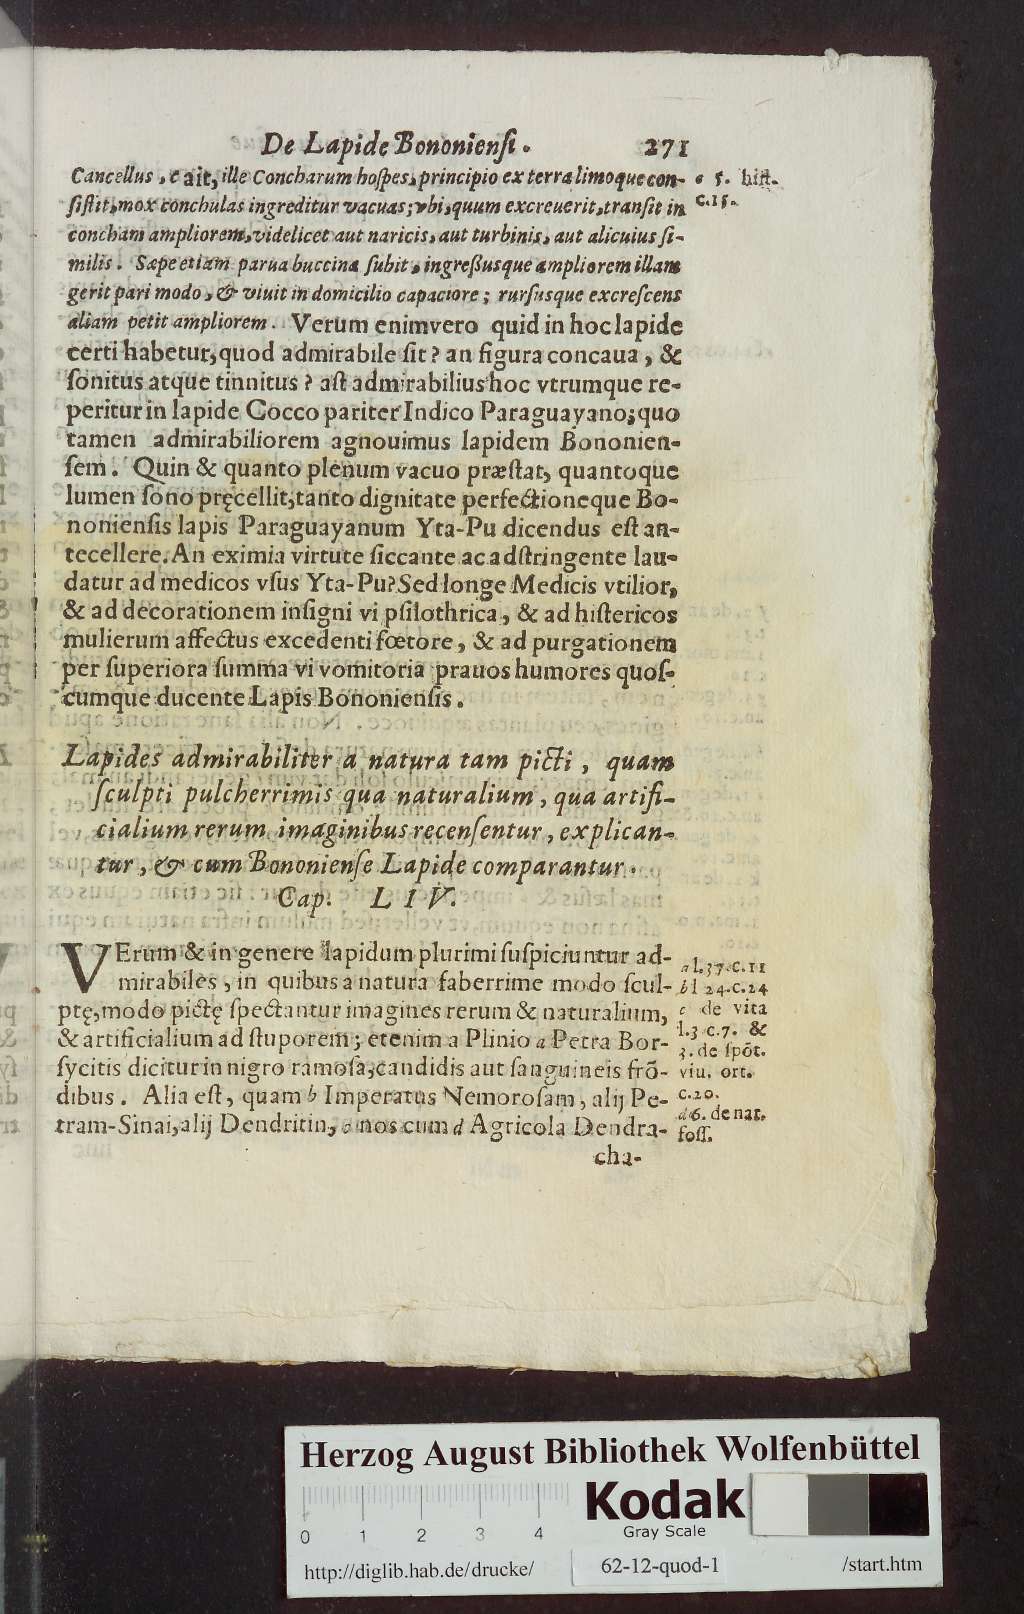 De Lapide Bononienſi. 271
Cancellus, e ait, ille Concharum hoſpes, principio ex terra limoque con-
ſiſtit, mox conchulas ingreditur vacuas; vbi, quum excreuerit, tranſit in
concham ampliorem, videlicet aut naricis, aut turbinis, aut alicuius ſi-
milis. Sæpe etiam parua buccina ſubit, ingreßusque ampliorem illam
gerit pari modo, & viuit in domicilio capaciore; rurſusque excreſcens
aliam petit ampliorem. Verum enimvero quid in hoc lapide
certi habetur, quod admirabile ſit? an figura concaua, &
ſonitus atque tinnitus? aſt admirabilius hoc vtrumque re-
peritur in lapide Cocco pariter Indico Paraguayano; quo
tamen admirabiliorem agnouimus lapidem Bononien-
ſem. Quin & quanto plenum vacuo præſtat, quantoque
lumen ſono pręcellit, tanto dignitate perfectioneque Bo-
nonienſis lapis Paraguayanum Yta-Pu dicendus eſt an-
tecellere. An eximia virtute ſiccante ac adſtringente lau-
datur ad medicos vſus Yta-Pu? Sed longe Medicis vtilior,
& ad decorationem inſigni vi pſilothrica, & ad hiſtericos
mulierum affectus excedenti fœtore, & ad purgationem
per ſuperiora ſumma vi vomitoria prauos humores quoſ-
cumque ducente Lapis Bononienſis.
e 5. hiſt.
c.15.
Lapides admirabiliter a natura tam picti, quam
ſculpti pulcherrimis qua naturalium, qua artifi-
cialium rerum imaginibus recenſentur, explican-
tur, & cum Bononienſe Lapide comparantur.
Cap. LIV.
VErum & in genere lapidum plurimi ſuſpiciuntur ad-
mirabiles, in quibus a natura faberrime modo ſcul-
ptę, modo pictę ſpectantur imagines rerum & naturalium,
& artificialium ad ſtuporem; etenim a Plinio a Petra Bor-
ſycitis dicitur in nigro ramoſa, candidis aut ſanguineis frõ-
dibus. Alia eſt, quam b Imperatus Nemoroſam, alij Pe-
tram-Sinai, alij Dendritin, c nos cum d Agricola Dendra-
cha-
a l.37.c.11
b l 24.c.24
c de vita
l.3 c.7. &
3. de ſpõt.
viu. ort.
c.20.
d 6. de nat.
foſſ.
Herzog August Bibliothek Wolfenbüttel
0 1 2 3 4
Kodak
Gray Scale
http://diglib.hab.de/drucke/ 62-12-quod-1 /start.htm